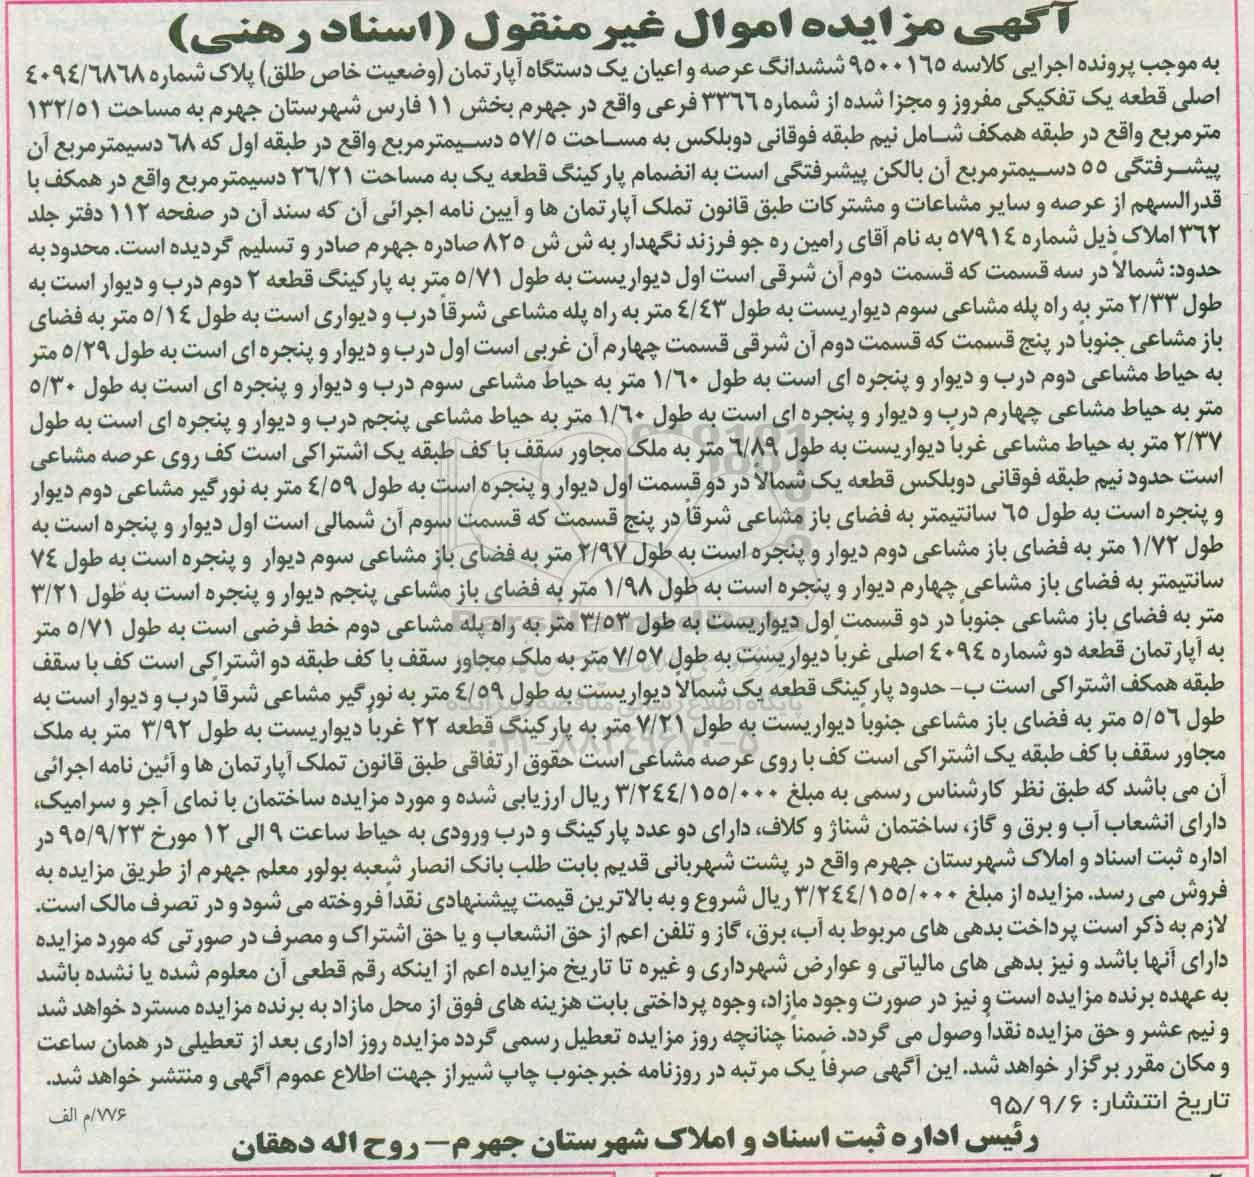 آگهی مزایده اموال غیر منقول (اسناد رهنی)
به موجب پرونده اجرایی کلاسه ۹۵۰۰۱۶۵ ششدانگ عرصه و اعیان یک دستگاه آپارتمان (وضعیت خاص طلق) پلاک شماره ۴۰۹۴/۶۸۶۸
اصلی قطعه یک تفکیکی مفروز و مجزا شده از شماره ۳۳۶۶ فرعی واقع در جهرم بخش ۱۱ فارس شهرستان جهرم به مساحت ۱۳۲/۵۱
مترمربع واقع در طبقه همکف شامل نیم طبقه فوقانی دوبلکس به مساحت ۵۷/۵ دسیمترمربع واقع در طبقه اول که ۶۸ دسیمترمربع آن
پیشرفتگی ۵۵ دسیمترمربع آن بالکن پیشرفتگی است به انضمام پارکینگ قطعه یک به مساحت ۲۶/۲۱ دسیمترمربع واقع در همکف با
قدرالسهم از عرصه و سایر مشاعات و مشترکات طبق قانون تملک آپارتمان ها و آیین نامه اجرائی آن که سند آن در صفحه ۱۱۲ دفتر جلد
۳۶۲ املاک ذیل شماره ۵۷۹۱۴ به نام آقای رامین ره جو فرزند نگهدار به ش ش ۸۲۵ صادره جهرم صادر و تسلیم گردیده است. محدود به
حدود: شمالاً در سه قسمت که قسمت دوم آن شرقی است اول دیواریست به طول ۵/۷۱ متر به پارکینگ قطعه ۲ دوم درب و دیوار است به
طول ۲/۳۳ متر به راه پله مشاعی سوم دیواریست به طول ۴/۴۳ متر به راه پله مشاعی شرقاً درب و دیواری است به طول ۵/۱۴ متر به فضای
باز مشاعی جنوباً در پنج قسمت که قسمت دوم آن شرقی قسمت چهارم آن غربی است اول درب و دیوار و پنجره ای است به طول ۵/۲۹ متر
به حیاط مشاعی دوم درب و دیوار و پنجره ای است به طول ۱/۶۰ متر به حیاط مشاعی سوم درب و دیوار و پنجره ای است به طول ۵/۳۰
متر به حیاط مشاعی چهارم درب و دیوار و پنجره ای است به طول ۱/۶۰ متر به حیاط مشاعی پنجم درب و دیوار و پنجره ای است به طول
۲/۳۷ متر به حیاط مشاعی غرباً دیواریست به طول ۶/۸۹ متر به ملک مجاور سقف با کف طبقه یک اشتراکی است کف روی عرصه مشاعی
است حدود نیم طبقه فوقانی دوبلکس قطعه یک شمالاً در دو قسمت اول دیوار و پنجره است به طول ۴/۵۹ متر به نورگیر مشاعی دوم دیوار
و پنجره است به طول ۶۵ سانتیمتر به فضای باز مشاعی شرقاً در پنج قسمت که قسمت سوم آن شمالی است اول دیوار و پنجره است به
طول ۱/۷۲ متر به فضای باز مشاعی دوم دیوار و پنجره است به طول ۲/۹۷ متر به فضای باز مشاعی سوم دیوار و پنجره است به طول ۷۴
سانتیمتر به فضای باز مشاعی چهارم دیوار و پنجره است به طول ۱/۹۸ متر به فضای باز مشاعی پنجم دیوار و پنجره است به طول ۳/۲۱
متر به فضای باز مشاعی جنوباً در دو قسمت اول دیواریست به طول ۳/۵۳ متر به راه پله مشاعی دوم خط فرضی است به طول ۵/۷۱ متر
به آپارتمان قطعه دو شماره ۴۰۹۴ اصلی غرباً دیواریست به طول ۷/۵۷ متر به ملک مجاور سقف با کف طبقه دو اشتراکی است کف با سقف
طبقه همکف اشتراکی است ب- حدود پارکینگ قطعه یک شمالاً دیواریست به طول ۴/۵۹ متر به نورگیر مشاعی شرقاً درب و دیوار است به
طول ۵/۵۶ متر به فضای باز مشاعی جنوباً دیواریست به طول ۷/۲۱ متر به پارکینگ قطعه ۲۲ غرباً دیواریست به طول ۳/۹۲ متر به ملک
مجاور سقف با کف طبقه یک اشتراکی است کف با روی عرصه مشاعی است حقوق ارتفاقی طبق قانون تملک آپارتمان ها و آئین نامه اجرائی
آن می باشد که طبق نظر کارشناس رسمی به مبلغ ۳/۲۴۴/۱۵۵/۰۰۰ ریال ارزیابی شده و مورد مزایده ساختمان با نمای آجر و سرامیک،
دارای انشعاب آب و برق و گاز، ساختمان شناژ و کلاف، دارای دو عدد پارکینگ و درب ورودی به حیاط ساعت ۹ الی ۱۲ مورخ ۹۵/۹/۲۳ در
اداره ثبت اسناد و املاک شهرستان جهرم واقع در پشت شهربانی قدیم بابت طلب بانک انصار شعبه بولور معلم جهرم از طریق مزایده به
فروش می رسد. مزایده از مبلغ ۳/۲۴۴/۱۵۵/۰۰۰ ریال شروع و به بالاترین قیمت پیشنهادی نقداً فروخته می شود و در تصرف مالک است.
لازم به ذکر است پرداخت بدهی های مربوط به آب، برق، گاز و تلفن اعم از حق انشعاب و یا حق اشتراک و مصرف در صورتی که مورد مزایده
دارای آنها باشد و نیز بدهی های مالیاتی و عوارض شهرداری و غیره تا تاریخ مزایده اعم از اینکه رقم قطعی آن معلوم شده یا نشده باشد
به عهده برنده مزایده است و نیز در صورت وجود مازاد، وجوه پرداختی بابت هزینه های فوق از محل مازاد به برنده مزایده مسترد خواهد شد
و نیم عشر و حق مزایده نقداً وصول می گردد. ضمناً چنانچه روز مزایده تعطیل رسمی گردد مزایده روز اداری بعد از تعطیلی در همان ساعت
و مکان مقرر برگزار خواهد شد. این آگهی صرفاً یک مرتبه در روزنامه خبرجنوب چاپ شیراز جهت اطلاع عموم آگهی و منتشر خواهد شد.
تاریخ انتشار: ۹۵/۹/۶
۷۷۶/م الف
رئیس اداره ثبت اسناد و املاک شهرستان جهرم – روح اله دهقان